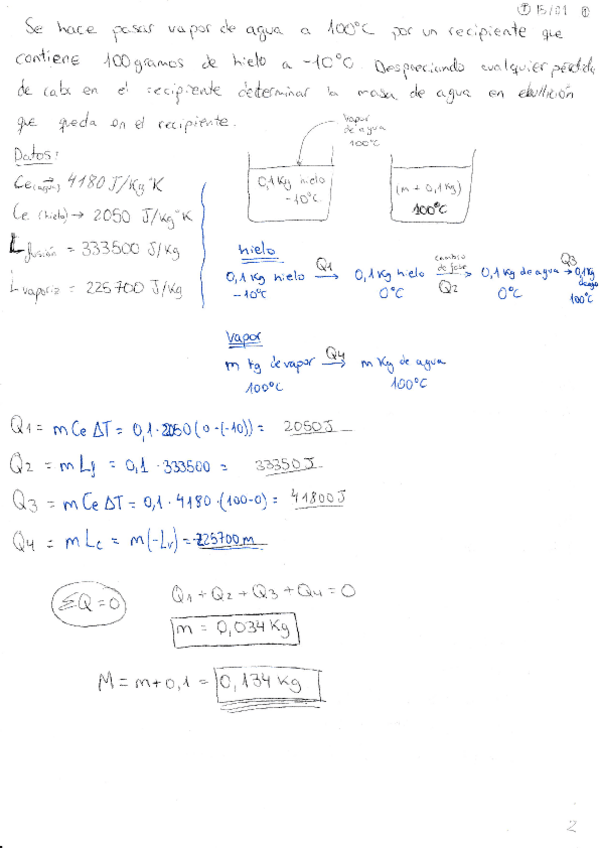 ① 15/01 ①
Se hace pasar vapor de agua a 100°C por un recipiente que
contiene 100 gramos de hielo a -10°C. Despreciando cualquier pérdida
de calor en el recipiente determinar la masa de agua en ebullición
que queda en el recipiente.
Datos:
Ce(agua) → 4180 J/Kg°K
Ce (hielo) → 2050 J/Kg°K
L fusión = 333500 J/kg
L vaporiz = 225700 J/kg
vapor
de agua
100°C
0,1 Kg hielo
-10°C
(m + 0,1 Kg)
100°C
hielo
0,1 Kg hielo Q1 → 0,1 Kg hielo cambio de fase Q2 → 0,1 Kg de agua Q3 → 0,1 Kg de agua
-10°C 0°C 0°C 100°C
Vapor
m kg de vapor Q4 → m Kg de agua
100°C 100°C
Q1 = m Ce ΔT = 0,1·2050(0-(-10)) = 2050 J
Q2 = m Lf = 0,1·333500 = 33350 J
Q3 = m Ce ΔT = 0,1·4180·(100-0) = 41800 J
Q4 = m Lc = m(-Lv) = -225700 m
ΣQ=0
Q1 + Q2 + Q3 + Q4 = 0
m = 0,034 Kg
M = m + 0,1 = 0,134 kg
2